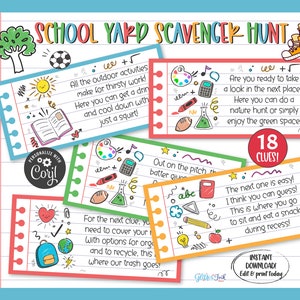 SCHOOL YARD SCAVENGER HUNT
All the outdoor activities
make for thirsty work!
Here you can get a drink
and cool down with
just a squirt!
Are you ready to take
a look in the next place
Here you can do a
nature hunt or simply
enjoy the green space
PERSONALIZE WITH
Corjl
18
CLUES!
Out on the pitch, th
batter
The next one is easy!
I think you can guess!
This is where you go
to sit and eat a snack
during recess!
For the next clue, you
need to cover your
with options for organ
and to recycle, this
where trash goes!
INSTANT
DOWNLOAD!
Edit & print today!